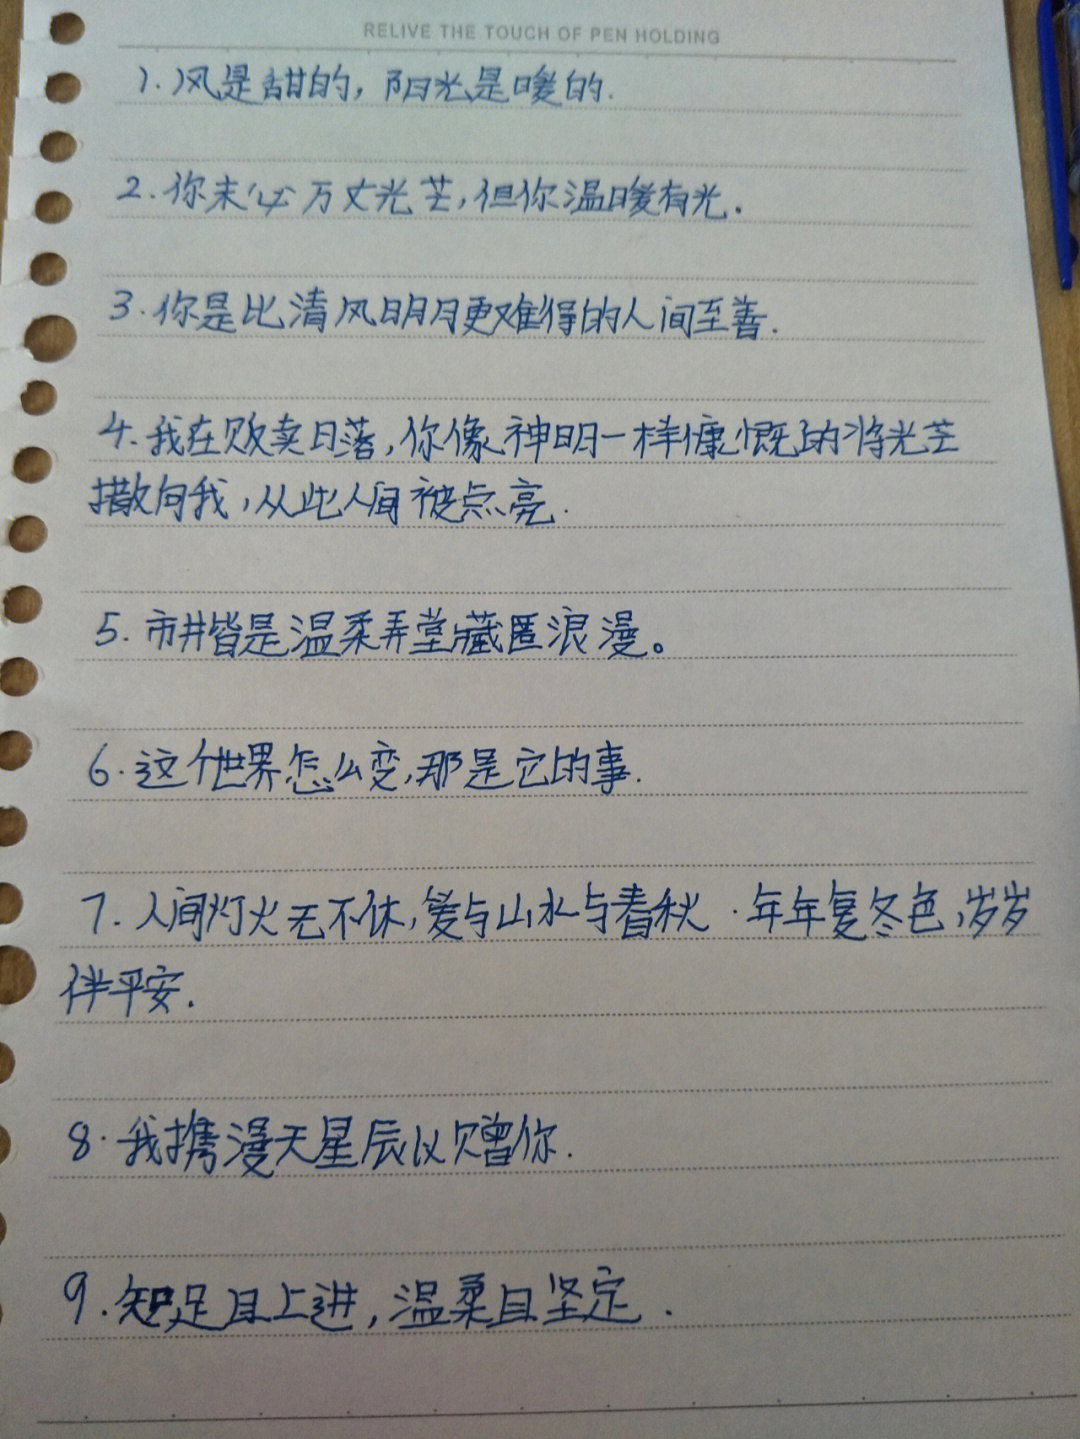 RELIVE THE TOUCH OF PEN HOLDING
1.风是甜的,阳光是暖的.
2.你未必万丈光芒,但你温暖有光.
3.你是比清风明月更难得的人间至善.
4.我在贩卖日落,你像神明一样慷慨的将光芒
撒向我,从此人间被点亮.
5.市井皆是温柔弄堂藏匿浪漫。
6.这个世界怎么变,那是它的事.
7.人间灯火无不休,爱与山水与春秋.年年复冬色,岁岁
伴平安.
8.我携漫天星辰以赠你.
9.知足且上进,温柔且坚定.